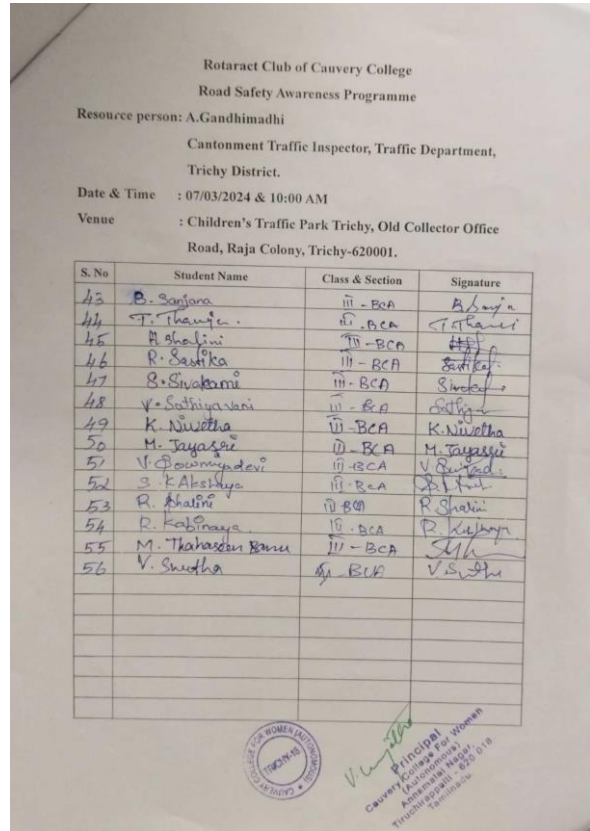 Rotaract Club of Cauvery College
Road Safety Awareness Programme
Resource person: A.Gandhimadhi
Cantonment Traffic Inspector, Traffic Department,
Trichy District.
Date & Time : 07/03/2024 & 10:00 AM
Venue : Children's Traffic Park Trichy, Old Collector Office
Road, Raja Colony, Trichy-620001.
S. No Student Name Class & Section Signature
43 B. Sanjana III - BCA
44 T. Thanuja. III - BCA
45 A Shalini III - BCA
46 R. Sastika III - BCA
47 S. Sivakami III - BCA
48 V. Sathiyavani III - BCA
49 K. Nivetha III - BCA K. Nivetha
50 M. Jayassri III - BCA M. Jayassri
51 V. Sowmyadevi III - BCA
52 S. K Akshaya III - BCA
53 R. Shalini III BCA R Shalini
54 R. Kabinaya. III - BCA
55 M. Thahaseen Banu III - BCA
56 V. Swetha - BCA
CAUVERY COLLEGE FOR WOMEN (AUTONOMOUS)
TRICHY-18
Principal
Cauvery College For Women
(Autonomous)
Annamalai Nagar,
Tiruchirappalli - 620 018
Tamilnadu